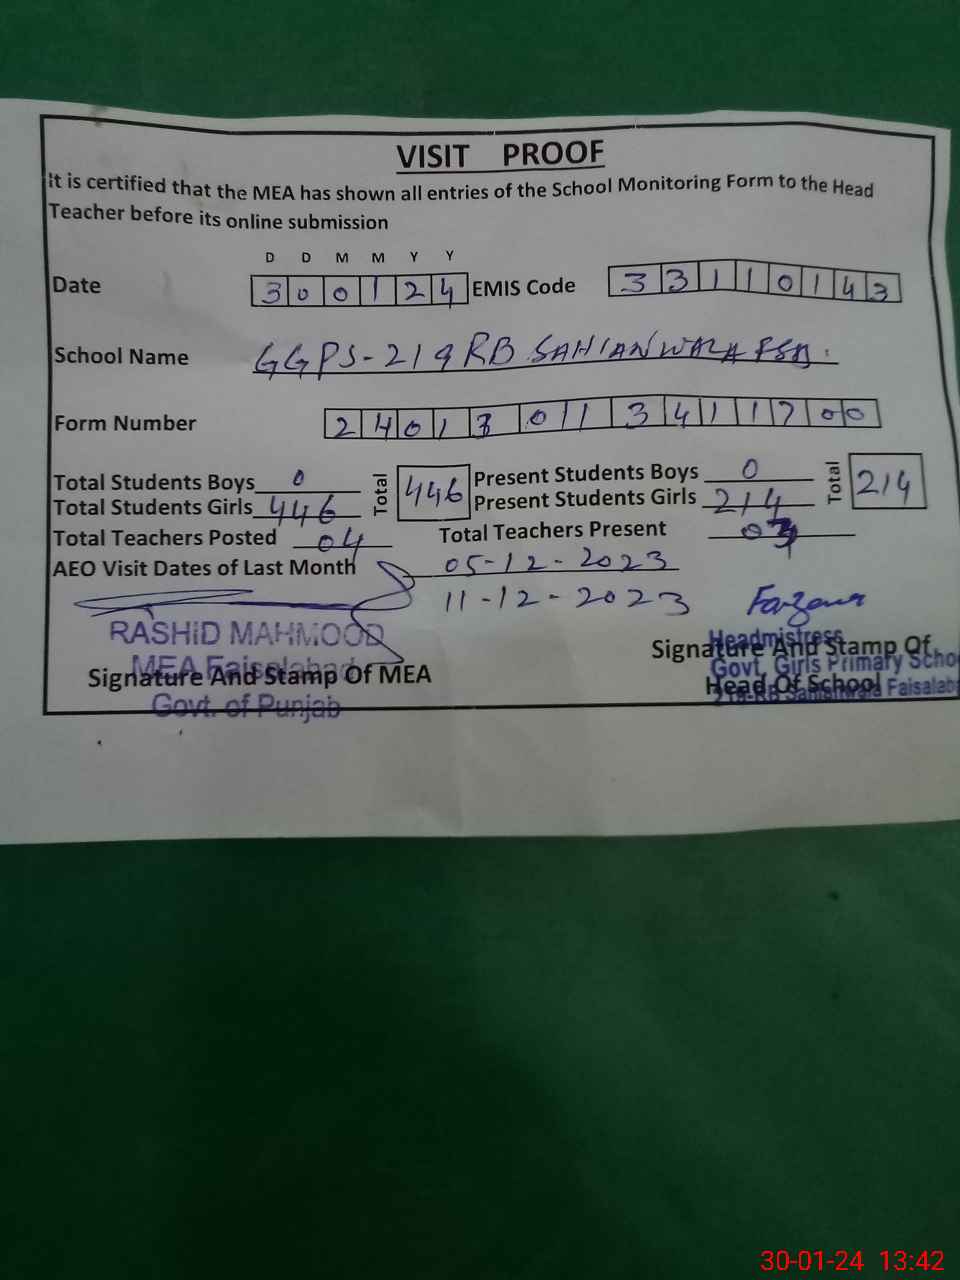 VISIT PROOF
It is certified that the MEA has shown all entries of the School Monitoring Form to the Head
Teacher before its online submission
D D M M Y Y
Date 300124 EMIS Code 33110143
School Name GGPS-219 RB SAHIANWALA FSD
Form Number 2401301134111700
Total Students Boys 0 Total 446 Present Students Boys 0 Total 214
Total Students Girls 446 Present Students Girls 214
Total Teachers Posted 04 Total Teachers Present
AEO Visit Dates of Last Month 05-12-2023
11-12-2023 Farzana
RASHID MAHMOOD
MEA Faisalabad
Signature And Stamp Of MEA
Govt. of Punjab
Headmistress
Signature And Stamp Of
Govt. Girls Primary Scho
Head Of School
219-RB Sahianwala Faisalab
30-01-24 13:42